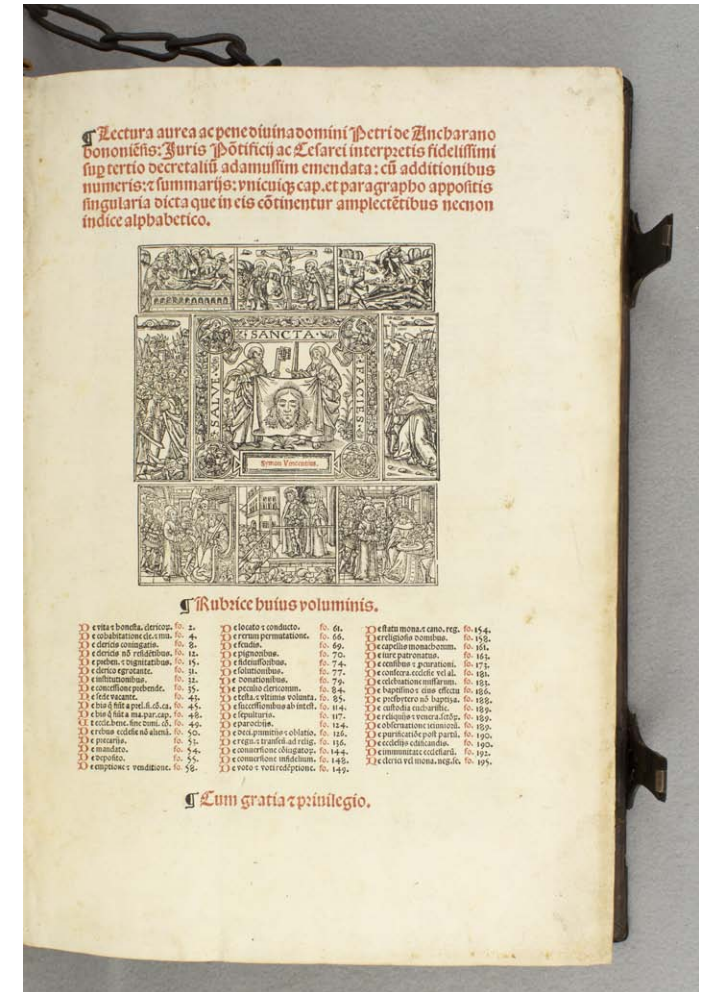 ¶ Lectura aurea ac pene diuina domini Petri de Ancharano
bononiēsis: Juris Pōtificij ac Cesarei interpretis fidelissimi
sup tertio decretaliū adamussim emendata: cū additionibus
numeris: ⁊ summarijs: vnicuiqꝫ cap. et paragrapho appositis
singularia dicta que in eis cōtinentur amplectētibus necnon
indice alphabetico.
SANCTA
SALVE
FACIES
Symon Vincentius.
¶ Rubrice huius voluminis.
De vita ⁊ honesta. clericoꝝ. fo. 2.
De cohabitatione cle. ⁊ mu. fo. 4.
De clericis coniugatis. fo. 8.
De clericis nō residētibus. fo. 12.
De preben. ⁊ dignitatibus. fo. 15.
De clerico egrotante. fo. 31.
De institutionibus. fo. 32.
De concessione prebende. fo. 35.
De sede vacante. fo. 43.
De his q̄ fiūt a prel. si. cō. ca. fo. 45.
De his q̄ fiūt a ma. par. cap. fo. 48.
Ut eccle. bene. sine dimi. cō. fo. 49.
De rebus ecclesie nō aliena. fo. 50.
De precarijs. fo. 53.
De mandato. fo. 54.
De deposito. fo. 55.
De emptione ⁊ venditione. fo. 58.
De locato ⁊ conducto. fo. 61.
De rerum permutatione. fo. 66.
De feudis. fo. 69.
De pignoribus. fo. 70.
De fideiussoribus. fo. 74.
De solutionibus. fo. 77.
De donationibus. fo. 79.
De peculio clericorum. fo. 84.
De testa. ⁊ vltimis volunta. fo. 85.
De successionibus ab intest. fo. 114.
De sepulturis. fo. 117.
De parochijs. fo. 124.
De deci. primitijs ⁊ oblatio. fo. 126.
De regu. ⁊ transeū. ad relig. fo. 136.
De conuersione cōiugatoꝝ. fo. 144.
De conuersione infidelium. fo. 148.
De voto ⁊ voti redēptione. fo. 149.
De statu mona. ⁊ cano. reg. fo. 154.
De religiosis domibus. fo. 158.
De capellis monachorum. fo. 161.
De iure patronatus. fo. 163.
De censibus ⁊ pcurationi. fo. 173.
De consecra. ecclesie vel al. fo. 181.
De celebratione missarum. fo. 183.
De baptismo ⁊ eius effectu fo. 186.
De presbytero nō baptiza. fo. 188.
De custodia eucharistie. fo. 189.
De reliquijs ⁊ venera. sctōꝝ. fo. 189.
De obseruatione ieiunioꝝ. fo. 189.
De purificatiōe post partū. fo. 190.
De ecclesijs edificandis. fo. 190.
De immunitate ecclesiarū. fo. 192.
Ne clerici vel mona. neg. se. fo. 195.
¶ Cum gratia ⁊ priuilegio.